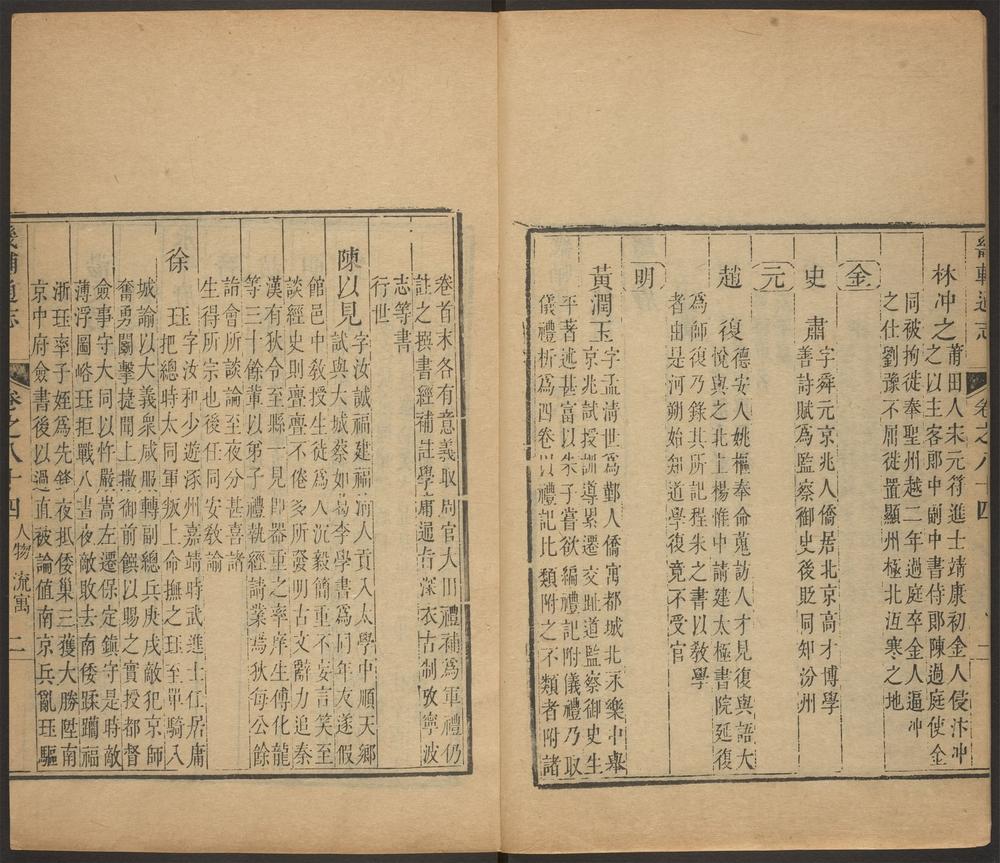 畿輔通志 卷之八十四
林冲之 莆田人未元符進士靖康初金人侵汴冲
之以主客郎中副中書侍郎陳過庭使金
同被拘徙奉聖州越二年過庭卒金人逼冲
之仕劉豫不屈徙置顯州極北沍寒之地
金
史肅 字舜元京兆人僑居北京高才博學
善詩賦爲監察御史後貶同知汾州
元
趙復 德安人姚樞奉命蒐訪人才見復與語大
悅與之北上楊惟中請建太極書院延復
爲師復乃錄其所記程朱之書以敎學
者由是河朔始知道學復竟不受官
明
黃潤玉 字孟淸世爲鄞人僑寓都城北永樂中舉
京兆試授訓導累遷交趾道監察御史生
平著述甚富以朱子嘗欲編禮記附儀禮乃取
儀禮析爲四卷以禮記比類附之不類者附諸
卷首末各有意義取周官大田禮補爲軍禮仍
註之撰書經補註學庸通旨深衣古制攷寧波
志等書
行世
陳以見 字汝誠福建福淸人貢入太學中順天鄉
試與大城蔡如 李學書爲同年友遂假
館邑中敎授生徒爲人沉毅簡重不妄言笑至
談經史則亹亹不倦多所發明古文辭力追秦
漢有狄令至縣一見卽器重之率庠生傅化龍
等三十餘輩以弟子禮執經請業焉狄每公餘
諭會所談論至夜分甚喜諸
生得所宗也後任同安敎諭
徐珏 字汝和少遊涿州嘉靖時武進士任居庸
把總時大同軍叛上命撫之珏至單騎入
城諭以大義衆咸服轉副總兵庚戌敵犯京師
奮勇鬭擊捷聞上撤御前饌以賜之實授都督
僉事守大同以忤嚴嵩左遷保定鎮守是時敵
薄浮圖峪珏拒戰八晝夜敵敗去南倭蹂躪福
浙珏率子姪爲先鋒夜抵倭巢三獲大勝陞南
京中府僉書後以過直被論值南京兵亂珏驅
畿輔通志 卷之八十四 人物 流寓 二